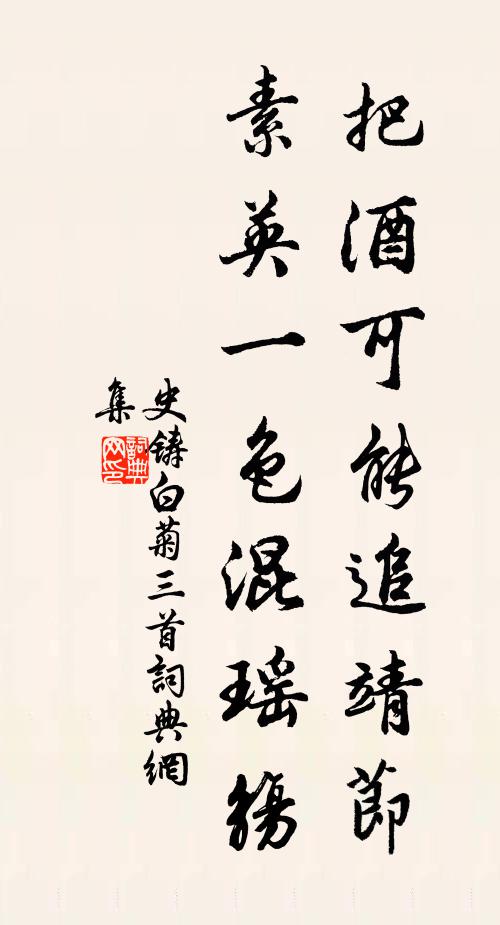 把酒可能追靖節
素英一色混瑶觴
史鑄白菊三首詞典網
集
詞典网印